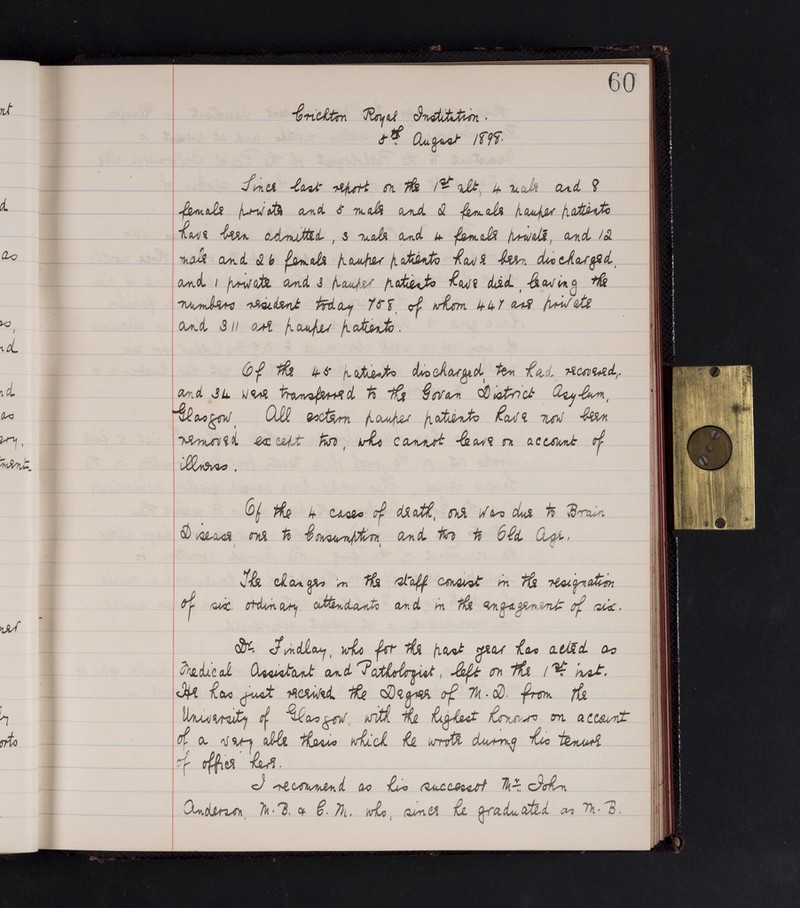 60
Crichton Royal Institution.
5th August 1898.
Since last report on the 1st ult, 4 male and 8
female private and 5 male and 2 female pauper patients
have been admitted, 3 male and 4 female private, and 12
male and 26 female pauper patients have been discharged,
and 1 private and 3 pauper patients have died, leaving the
numbers resident today 758, of whom 447 are private
and 311 are pauper patients.
Of the 45 patients discharged, ten had recovered,
and 34 were transferred to the Govan District Asylum,
Glasgow. All extern pauper patients have now been
removed except two, who cannot leave on account of
illness.
Of the 4 cases of death, one was due to Brain
Disease, one to Consumption, and two to Old Age.
The changes in the staff consist in the resignation
of six ordinary attendants and in the engagement of six.
Dr. Findlay, who for the past year has acted as
Medical Assistant and Pathologist, left on the 1st inst.
He has just received the Degree of M.D. from the
University of Glasgow, with the highest honours on account
of a very able thesis which he wrote during his tenure
of office here.
I recommend as his successor Mr. John
Anderson, M.B. & C.M. who, since he graduated as M.B.
nt
d
as
nd
as
ments
ner
orts